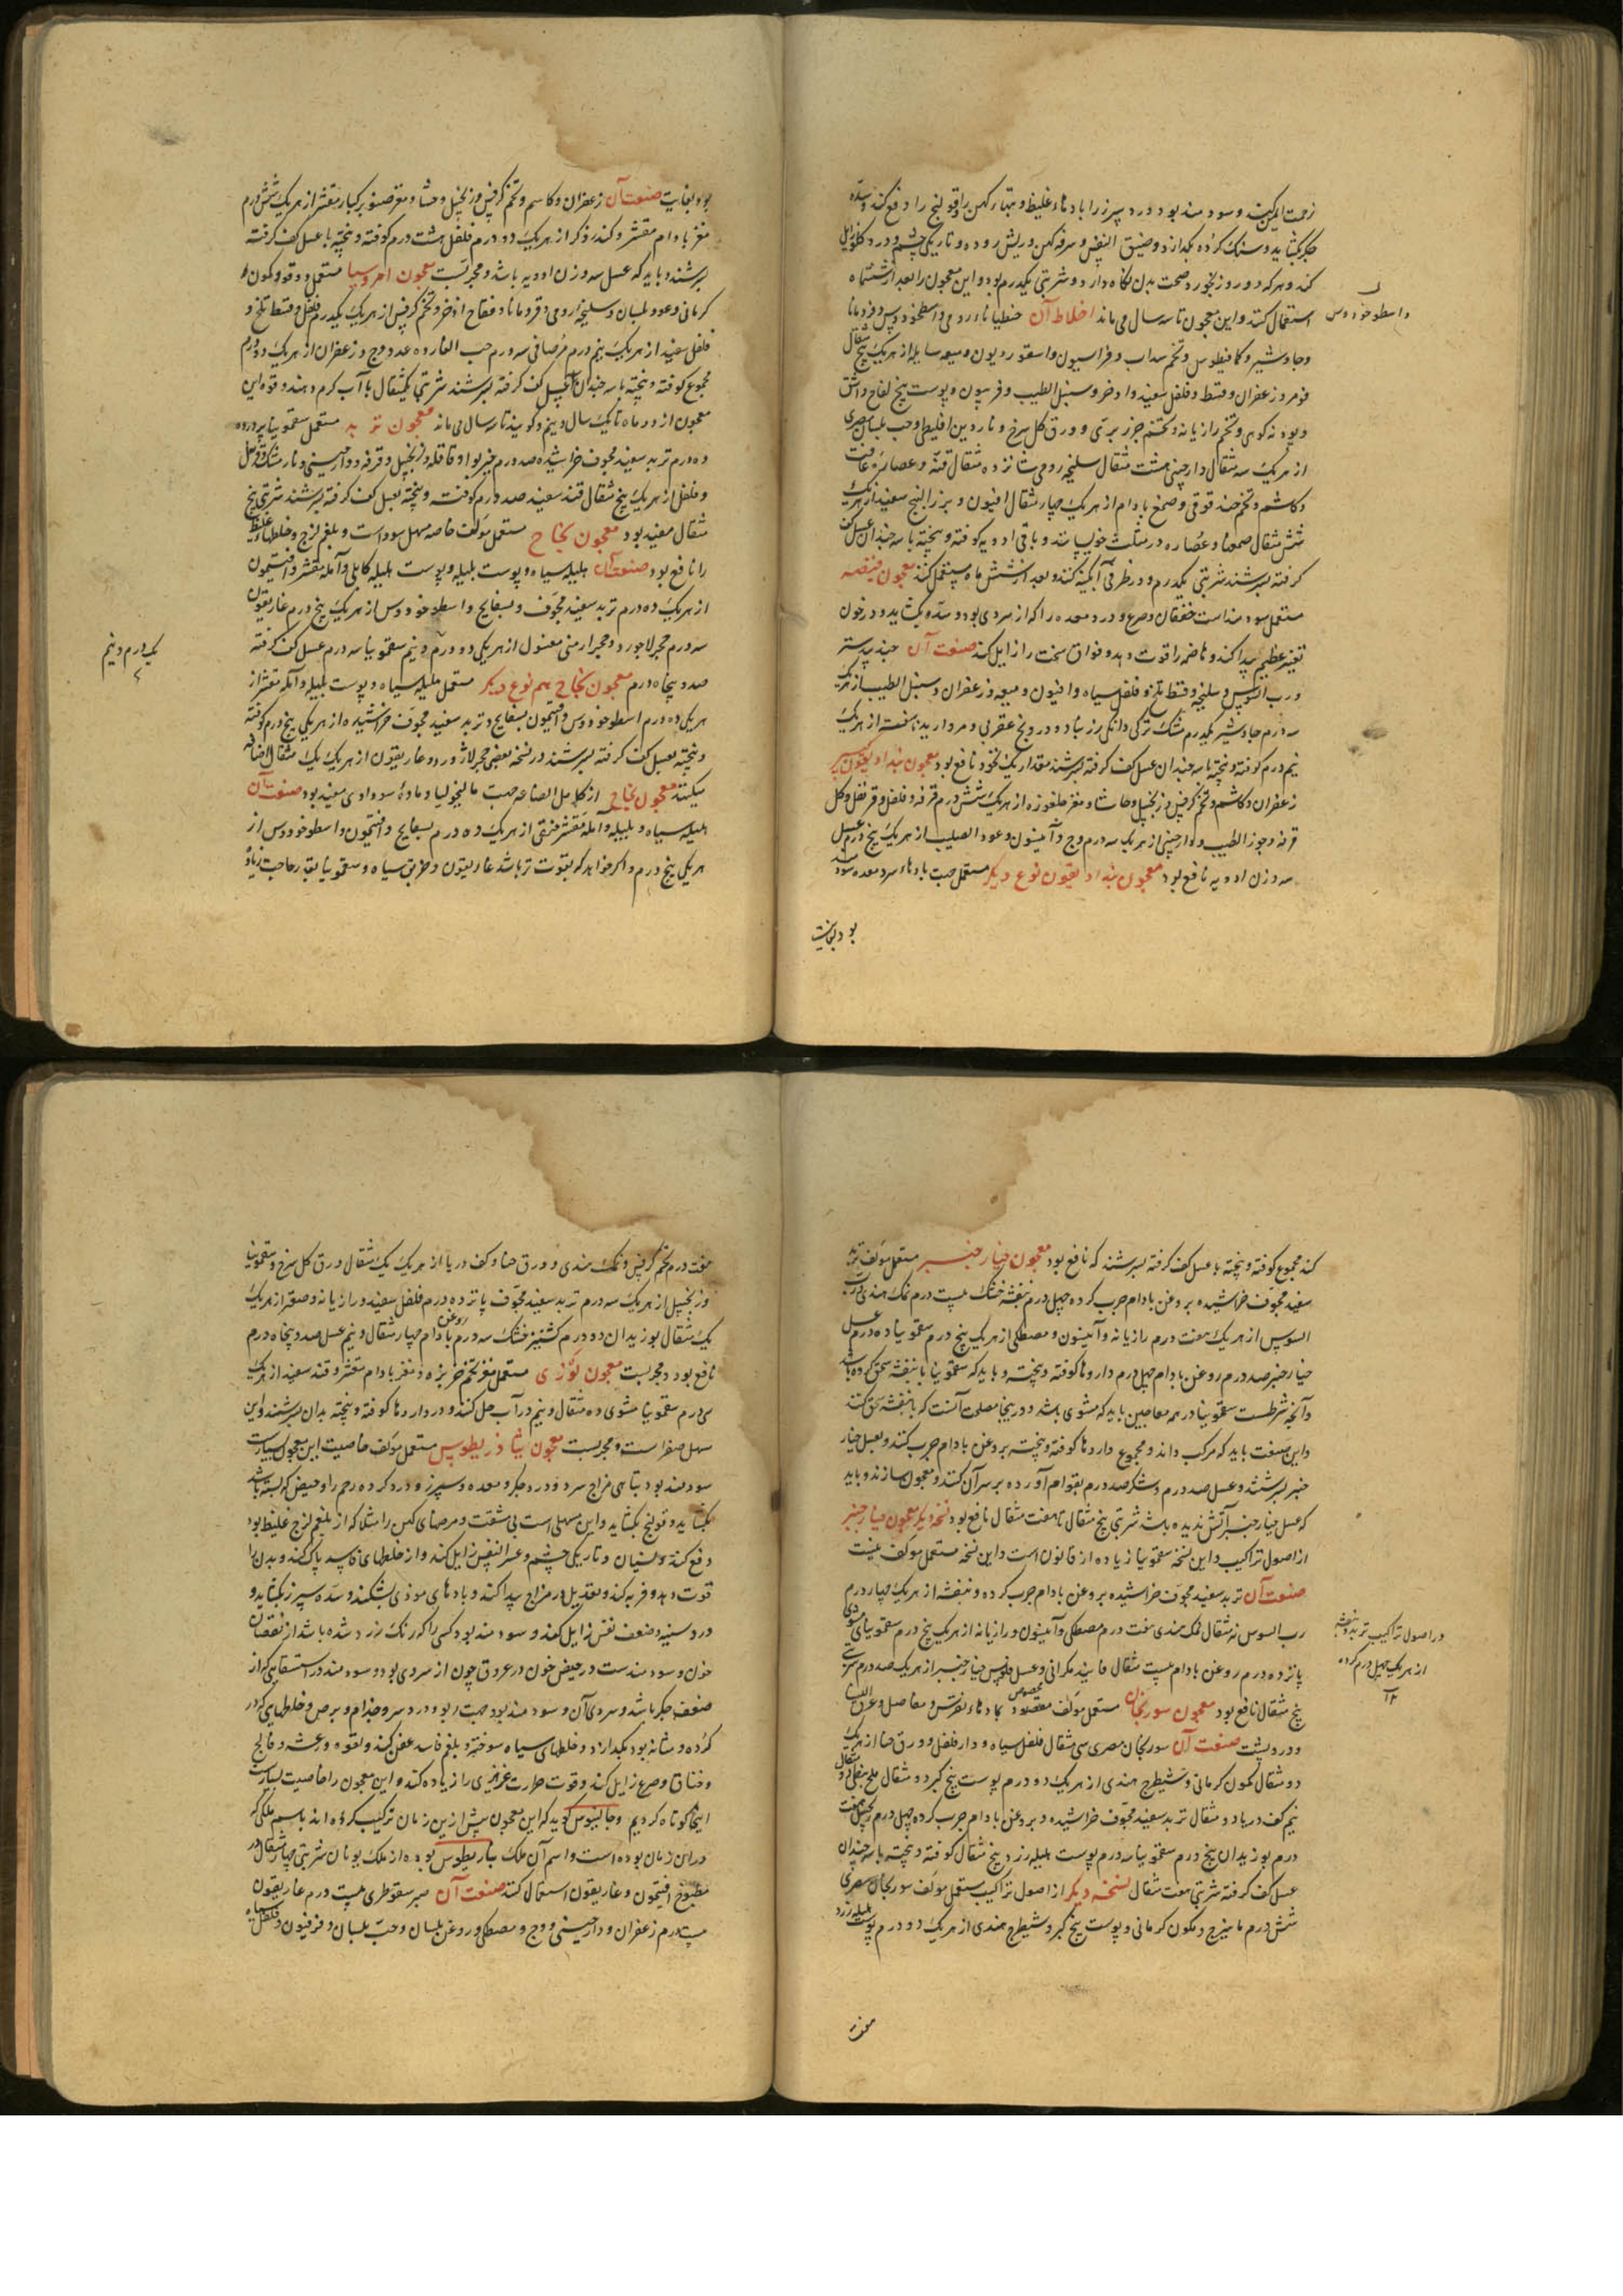 زحمت ایمن کند و سودمند بود درد سپرز را بادهاء غلیظ و تبهاء کهن را و قولنج را دفع کند و سده
جکر بکشاید و سنک کرده بکدازد و ضیق النفس و سرفه کهن و ریش روده و تاریکی چشم و درد کلو زایل
کند و هرکه دو روز بخورد صحت بدن نکاه دارد و شربتی یکدرم بود و این معجون را بعد از ششماه
استعمال کنند و این معجون تا سه سال می ماند اخلاط آن جنطیاناء رومی و اسطوخودوس و قردمانا
و اسطوخودوس
و جاوشیر و کمافیطوس و تخم سداب و فراسیون و اسقوردیون و میعه سایله از هریک پنج مثقال
فو مر و زعفران و قسط و فلفل سفید و اذخر و سنبل الطیب و فربیون و پوست بیخ لفاح و اشق
و پودنه کوهی و تخم رازیانه و تخم جزر بری و ورق کل سرخ و ناردین اقلیطی و حب بلسان مصری
از هریک سه مثقال دارچینی هشت مثقال سلیخه رومی شانزده مثقال قنه و عصاره غافت
و کاشم و تخم حندقوقی و صمغ بادام از هریک چهار مثقال افیون و بزر البنج سفید از هریک
شش مثقال صمغها و عصاره در مثلث خویسانند و باقی ادویه کوفته و بیخته با سه چندان عسل کف
کرفته بسرشند شربتی یکدرم و در ظرفی آبکینه کنند و بعد از شش ماه مستعمل کنند معجون قیصر
مستعمل سودمند است خفقان و صرع و درد معده را که از سردی بود و سده بکشاید و در خون
تغیر عظیم پیدا کند و هاضمه را قوت دهد و فواق سخت را زایل کند صنعت آن جندبیدستر
و رب السوس و سلیخه و قسط تلخ و فلفل سیاه و افیون و میعه و زعفران و سنبل الطیب از هریک
سه درم جاوشیر یکدرم مشک ترکی دانکی زرنباد و درونج عقربی و مروارید ناسفته از هریک
نیم درم کوفته و بیخته با سه چندان عسل کف کرفته بسرشند مقدار یک نخود نافع بود معجون بنداد یقون کبیر
زعفران و کاشم و تخم کرفس و زنجبیل و حاشا و مغز جلغوزه از هریک شش درم قرفه و فلفل و قرنفل و کل
قرفه و جوز الطیب و دارچینی از هریک سه درم وج و آنیسون و عود الصلیب از هریک پنج درم عسل
سه وزن ادویه نافع بود معجون بنداد یقون نوع دیکر مستعمل جهت بادهاء سرد معده سودمند
بود بغایت
بود بغایت صنعت آن زعفران و کاشم و تخم کرفس و زنجبیل و حاشا و مغز صنوبر کبار مقشر از هریک شش درم
مغز بادام مقشر و کندر ذکر از هریک دو درم فلفل هشت درم کوفته و بیخته با عسل کف کرفته
بسرشند و باید که عسل سه وزن ادویه باشد و مجربست معجون امروسیا مستعمل دوقو و کمون
کرمانی و عود بلسان و سلیخه رومی و قردمانا و فقاح اذخر و تخم کرفس از هریک یکدرم فلفل و قسط تلخ و
فلفل سفید از هریک نیم درم مر صافی سه درم حب الغار ده عدد وج و زعفران از هریک دو درم
مجموع کوفته و بیخته با سه چندان عسل کف کرفته بسرشند شربتی یکمثقال با آب کرم دهند و قوه این
معجون از دو ماه تا یک سال و نیم و کویند تا سه سال می ماند معجون تربد مستعمل سقمونیا
ده درم تربد سفید مجوف خراشیده صد درم خیربوا و قاقله و زنجبیل و قرفه و دارچینی و نارمشک و قرنفل
و فلفل از هریک پنج مثقال قند سفید صد درم کوفته و بیخته بعسل کف کرفته بسرشند شربتی پنج
مثقال مفید بود معجون نجاح مستعمل مولف خاصه مسهل سوداست و بلغم لزج و خلطهاء غلیظ
را نافع بود صنعت آن هلیله سیاه و پوست بلیله و پوست هلیله کابلی و آمله مقشر و افتیمون
از هریک ده درم تربد سفید مجوف و بسفایج و اسطوخودوس از هریک پنج درم غاریقون
سه درم حجر لاجورد و حجر ارمنی مغسول از هریکی دو درم و نیم سقمونیا سه درم عسل کف کرفته
یکدرم و نیم
صد و پنجاه درم معجون نجاح هم نوع دیکر مستعمل هلیله سیاه و پوست بلیله و آمله مقشر از
هریکی ده درم اسطوخودوس و افتیمون بسفایج و تربد سفید مجوف خراشیده از هریکی پنج درم کوفته
و بیخته بعسل کف کرفته بسرشند در نسخه بعضی حجر لاژورد و غاریقون از هریک یک مثقال اضافه
میکنند معجون نجاح از کامل الصناعه جهت مالیخولیا و ماده سوداوی مفید بود صنعت آن
هلیله سیاه و بلیله و آمله مقشر منقی از هریک ده درم بسفایج و افتیمون و اسطوخودوس از
هریکی پنج درم و اکر خواهد که بقوت تر باشد غاریقون و خربق سیاه و سقمونیا بقدر حاجت زیاده
کند مجموع کوفته و بیخته با عسل کف کرفته بسرشند که نافع بود معجون خیارجنبر مستعمل مولف تربد
سفید مجوف خراشیده بروغن بادام چرب کرده چهل درم بنفشه خشک بیست درم نمک هندی رب
السوس از هریک هفت درم رازیانه و آنیسون و مصطکی از هریک پنج درم سقمونیا ده درم عسل
خیارجنبر صد درم روغن بادام چهل درم داروها کوفته و بیخته و باید که سقمونیا با بنفشه سحق کرده باشد
و آنچه شرطست سقمونیا در همه معاجین باید که مشوی باشد و در اینجا مصلحت آنست که با بنفشه سحق کنند
و این صنعت باید که مرکب داند و مجموع داروها کوفته و بیخته بروغن بادام چرب کنند و بعسل خیار
جنبر بسرشند و عسل صد درم و شکر صد درم بقوام آورده بر سر آن کنند و معجون سازند و باید
که عسل خیارجنبر آتش ندیده باشد شربتی پنج مثقال تا هفت مثقال نافع بود نسخه دیکر معجون خیارجنبر
از اصول تراکیب و این نسخه سقمونیا زیاده از قانون است و این نسخه مستعمل مولف نیست
صنعت آن تربد سفید مجوف خراشیده بروغن بادام چرب کرده و بنفشه از هریک چهار درم
در اصول تراکیب تربد و بنفشه
از هریک چهل درم کرده
رب السوس نه مثقال نمک هندی هفت درم مصطکی و آنیسون و رازیانه از هریک پنج درم سقمونیای مشوی
پانزده درم روغن بادام بیست مثقال فانیذ مکرانی و عسل فلوس خیارجنبر از هریک صد درم شربتی
پنج مثقال نافع بود معجون سورنجان مستعمل مولف مخصوص بمادهاء نقرس و مفاصل و عرق النسا
و درد پشت صنعت آن سورنجان مصری سی مثقال فلفل سیاه و دار فلفل و ورق حنا از هریک
دو مثقال کمون کرمانی و شیطرج هندی از هریک دو درم پوست بیخ کبر دو مثقال ملح نفطی دو مثقال
نیم کف دریا دو مثقال تربد سفید مجوف خراشیده و بروغن بادام چرب کرده چهل درم زنجبیل هفت
درم بوزیدان پنج درم سقمونیا سه درم پوست هلیله زرد پنج مثقال کوفته و بیخته با سه چندان
عسل کف کرفته شربتی هفت مثقال نسخه دیکر از اصول تراکیب مستعمل مولف سورنجان مصری
شش درم ماهیزج و کمون کرمانی و پوست بیخ کبر و شیطرج هندی از هریک دو درم پوست هلیله زرد
هفت
هفت درم تخم کرفس و نمک هندی و ورق حنا و کف دریا از هریک یک مثقال ورق کل سرخ و سقمونیا
و زنجبیل از هریک سه درم تربد سفید مجوف پانزده درم فلفل سفید و رازیانه و صعتر از هریک
یک مثقال بوزیدان دو درم کشنیز خشک سه درم روغن بادام چهار مثقال و نیم عسل صد و پنجاه درم
نافع بود و مجربست معجون لوزی مستعمل مغز تخم خربزه و مغز بادام مقشر و قند سفید از هریک
سی درم سقمونیا مشوی ده مثقال و نیم در آب حل کنند و داروها کوفته و بیخته بدان بسرشند و این
مسهل صفراست و مجربست معجون تیاذریطوس مستعمل مولف خاصیت این معجون بسیارست
سودمند بود تباهی مزاج سرد و درد جکر و معده و سپرز و درد کرده و رحم را و حیض که بسته باشد
بکشاید و قولنج بکشاید و این مسهلی است بی مشقت و مرضهای کهن را مثلا که از بلغم لزج غلیظ بود
دفع کند و نسیان و تاریکی چشم و عسر النفس زایل کند و از خلطهای فاسد پاک کند و بدن را
قوت دهد و فربه کند و تعدیل در مزاج پیدا کند و بادهای موذی بشکند و سده سپرز بکشاید و
درد سینه و ضعف نفس زایل کند و سودمند بود کسی را که رنک زرد شده باشد از نقصان
خون و سودمندست در حیض خون در عروق چون از سردی بود و سودمند در استسقایی که از
ضعف جکر باشد و سردی آن و سودمند بود جهت ربو و درد سر و جذام و برص و خلطهایی که در
کرده و مثانه بود بکدازد و خلطهای سیاه سوخته و بلغم فاسد عفن کند و لقوه و رعشه و فالج
و خناق و صرع زایل کند و قوت حرارت غریزی را زیاده کند و این معجون را خاصیت بسیارست
اینجا کوتاه کردیم و جالینوس کوید که این معجون پیش ازین زمان ترکیب کرده اند باسم ملکی که
در آن زمان بوده است و اسم آن ملک تیادریطوس بوده از ملک یونان شربتی چهار مثقال در
مطبوخ افتیمون و غاریقون استعمال کنند صنعت آن صبر سقوطری بیست درم غاریقون
بیست درم زعفران و دارچینی و وج و مصطکی و روغن بلسان و حب بلسان و فرفیون و فلفل سیاه